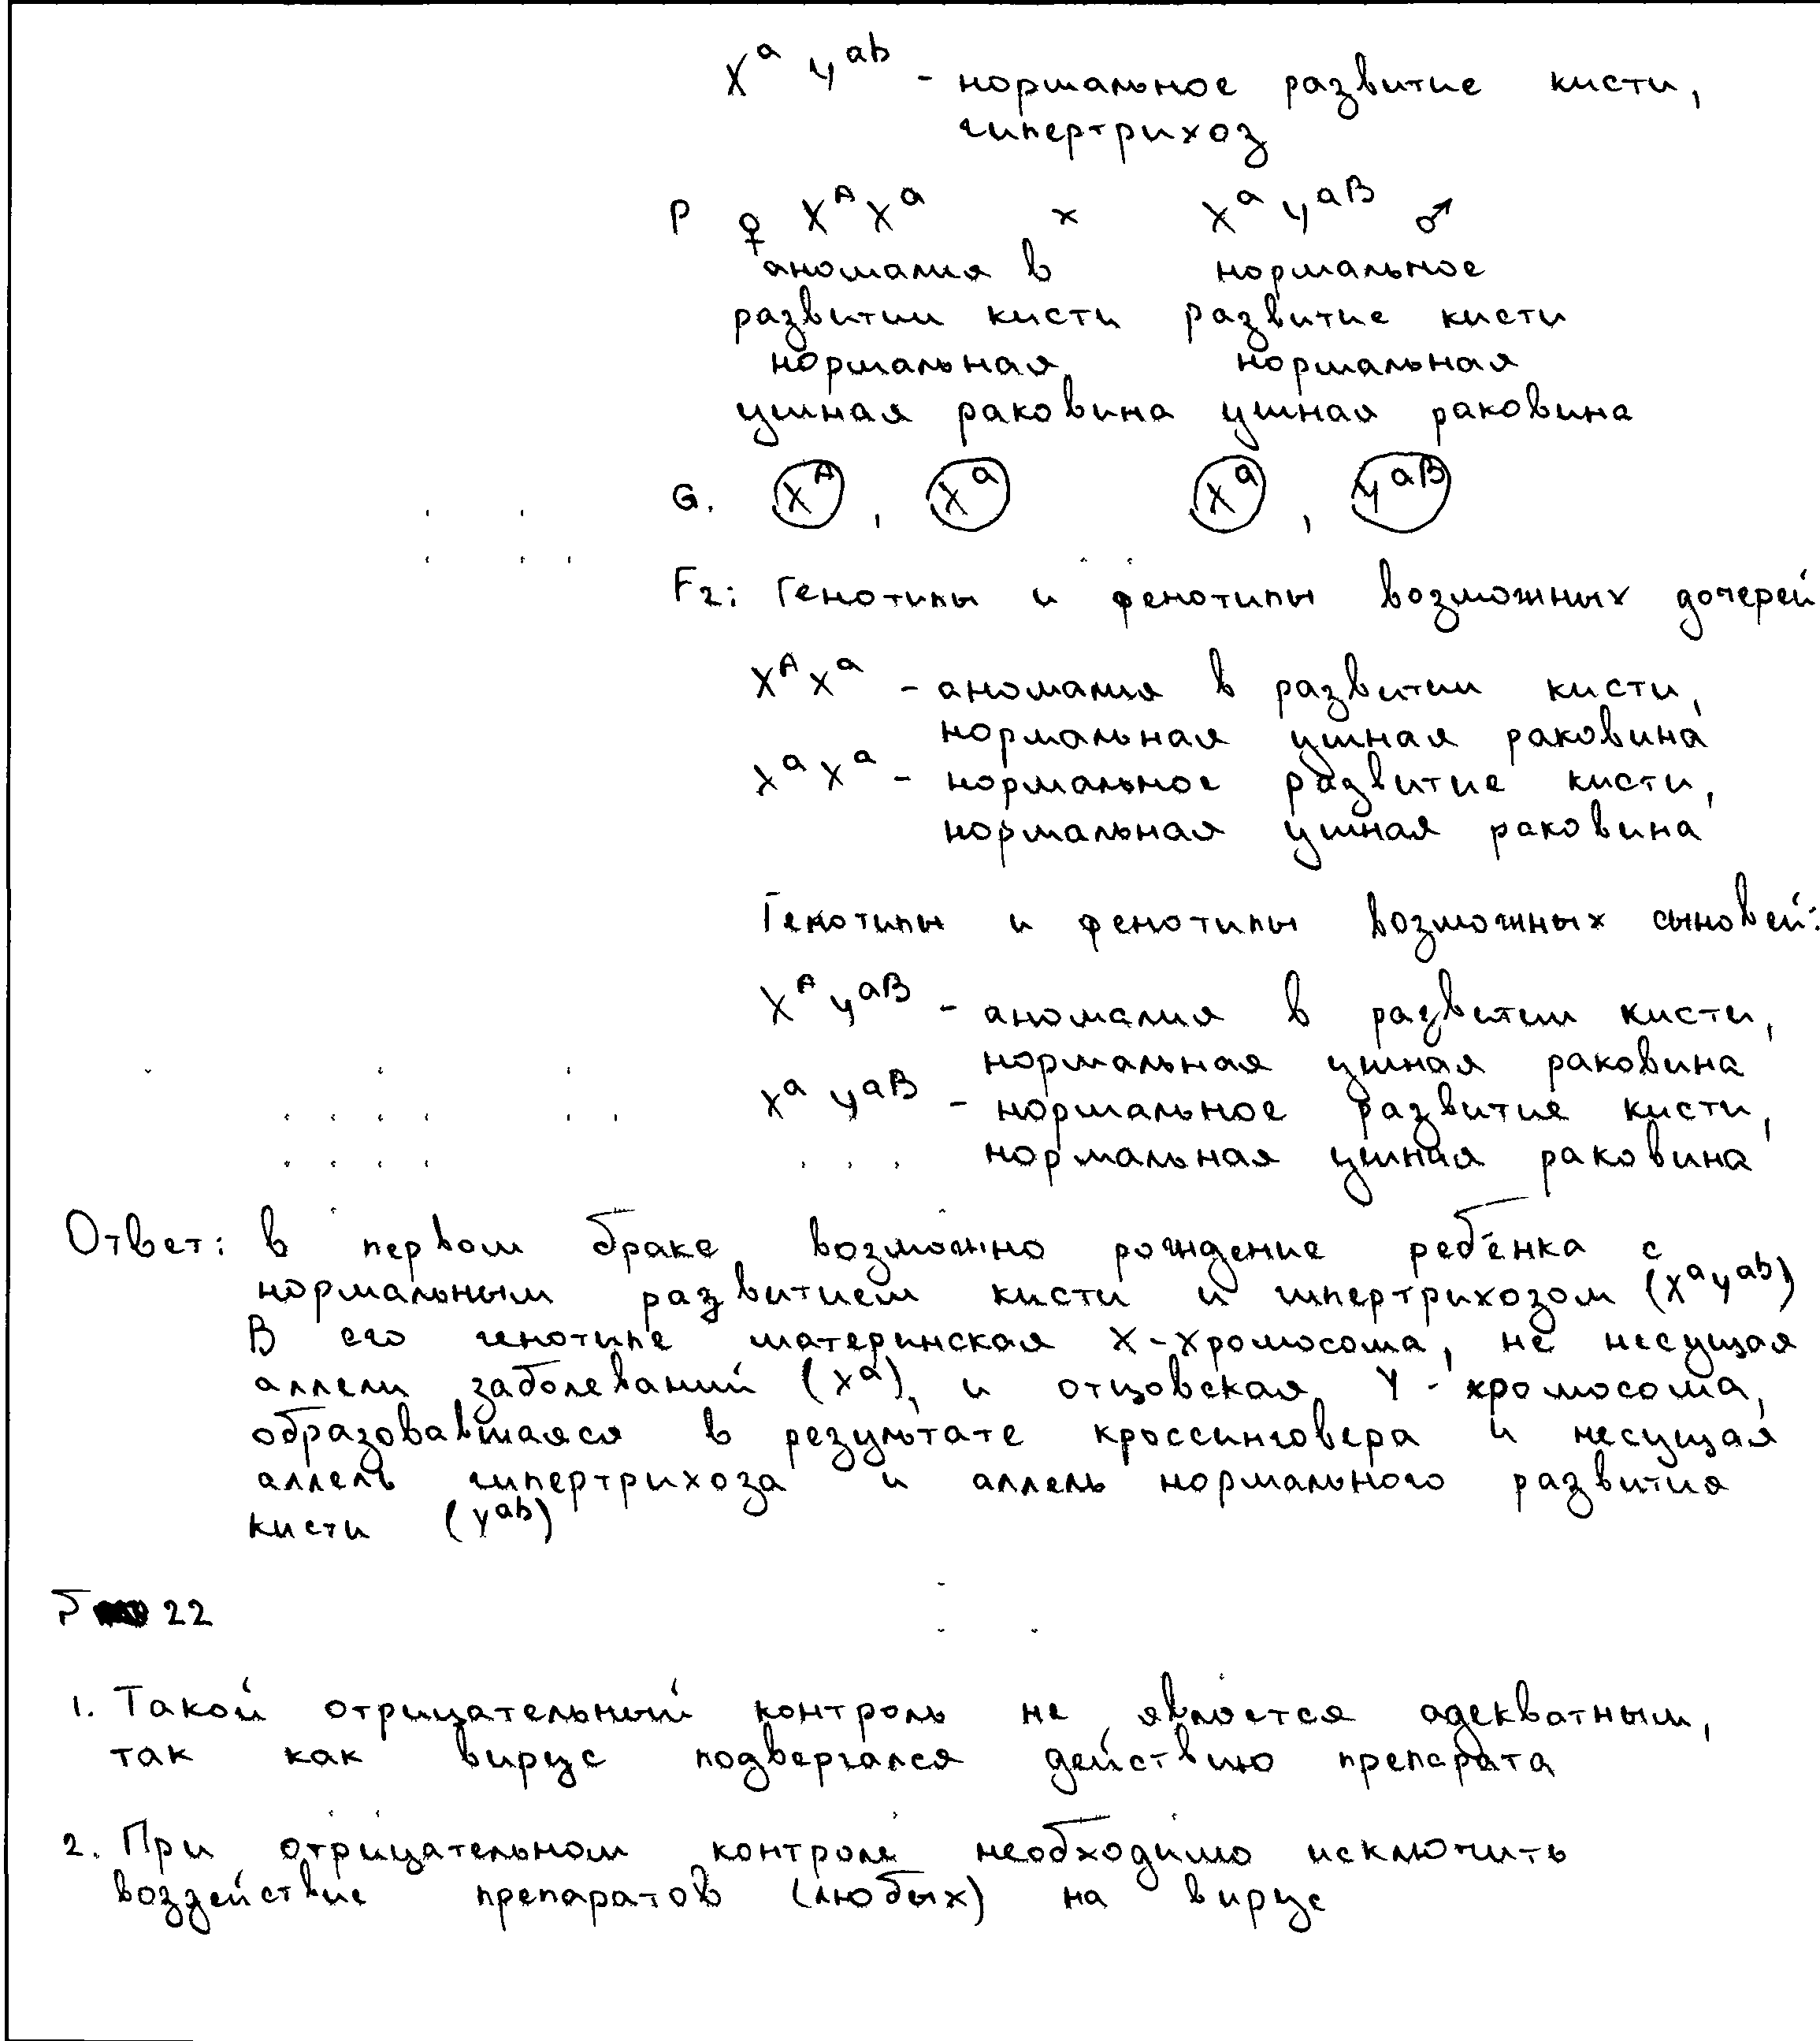 Xᵃ Yᵃᵇ - нормальное развитие кисти,
гипертрихоз
P ♀ Xᴬ Xᵃ × Xᵃ Yᵃᴮ ♂
аномалия в нормальное
развитии кисти развитие кисти
нормальная нормальная
ушная раковина ушная раковина
G. Xᴬ, Xᵃ Xᵃ, Yᵃᴮ
F₂: Генотипы и фенотипы возможных дочерей
Xᴬ Xᵃ - аномалия в развитии кисти,
нормальная ушная раковина
Xᵃ Xᵃ - нормальное развитие кисти,
нормальная ушная раковина
Генотипы и фенотипы возможных сыновей:
Xᴬ Yᵃᴮ - аномалия в развитии кисти,
нормальная ушная раковина
Xᵃ Yᵃᴮ - нормальное развитие кисти,
нормальная ушная раковина
Ответ: в первом браке возможно рождение ребёнка с
нормальным развитием кисти и гипертрихозом (XᵃYᵃᵇ)
В его генотипе материнская X-хромосома, не несущая
аллели заболеваний (Xᵃ), и отцовская Y-хромосома,
образовавшаяся в результате кроссинговера и несущая
аллель гипертрихоза и аллель нормального развития
кисти (Yᵃᵇ)
22
1. Такой отрицательный контроль не является адекватным,
так как вирус подвергался действию препарата
2. При отрицательном контроле необходимо исключить
воздействие препаратов (любых) на вирус